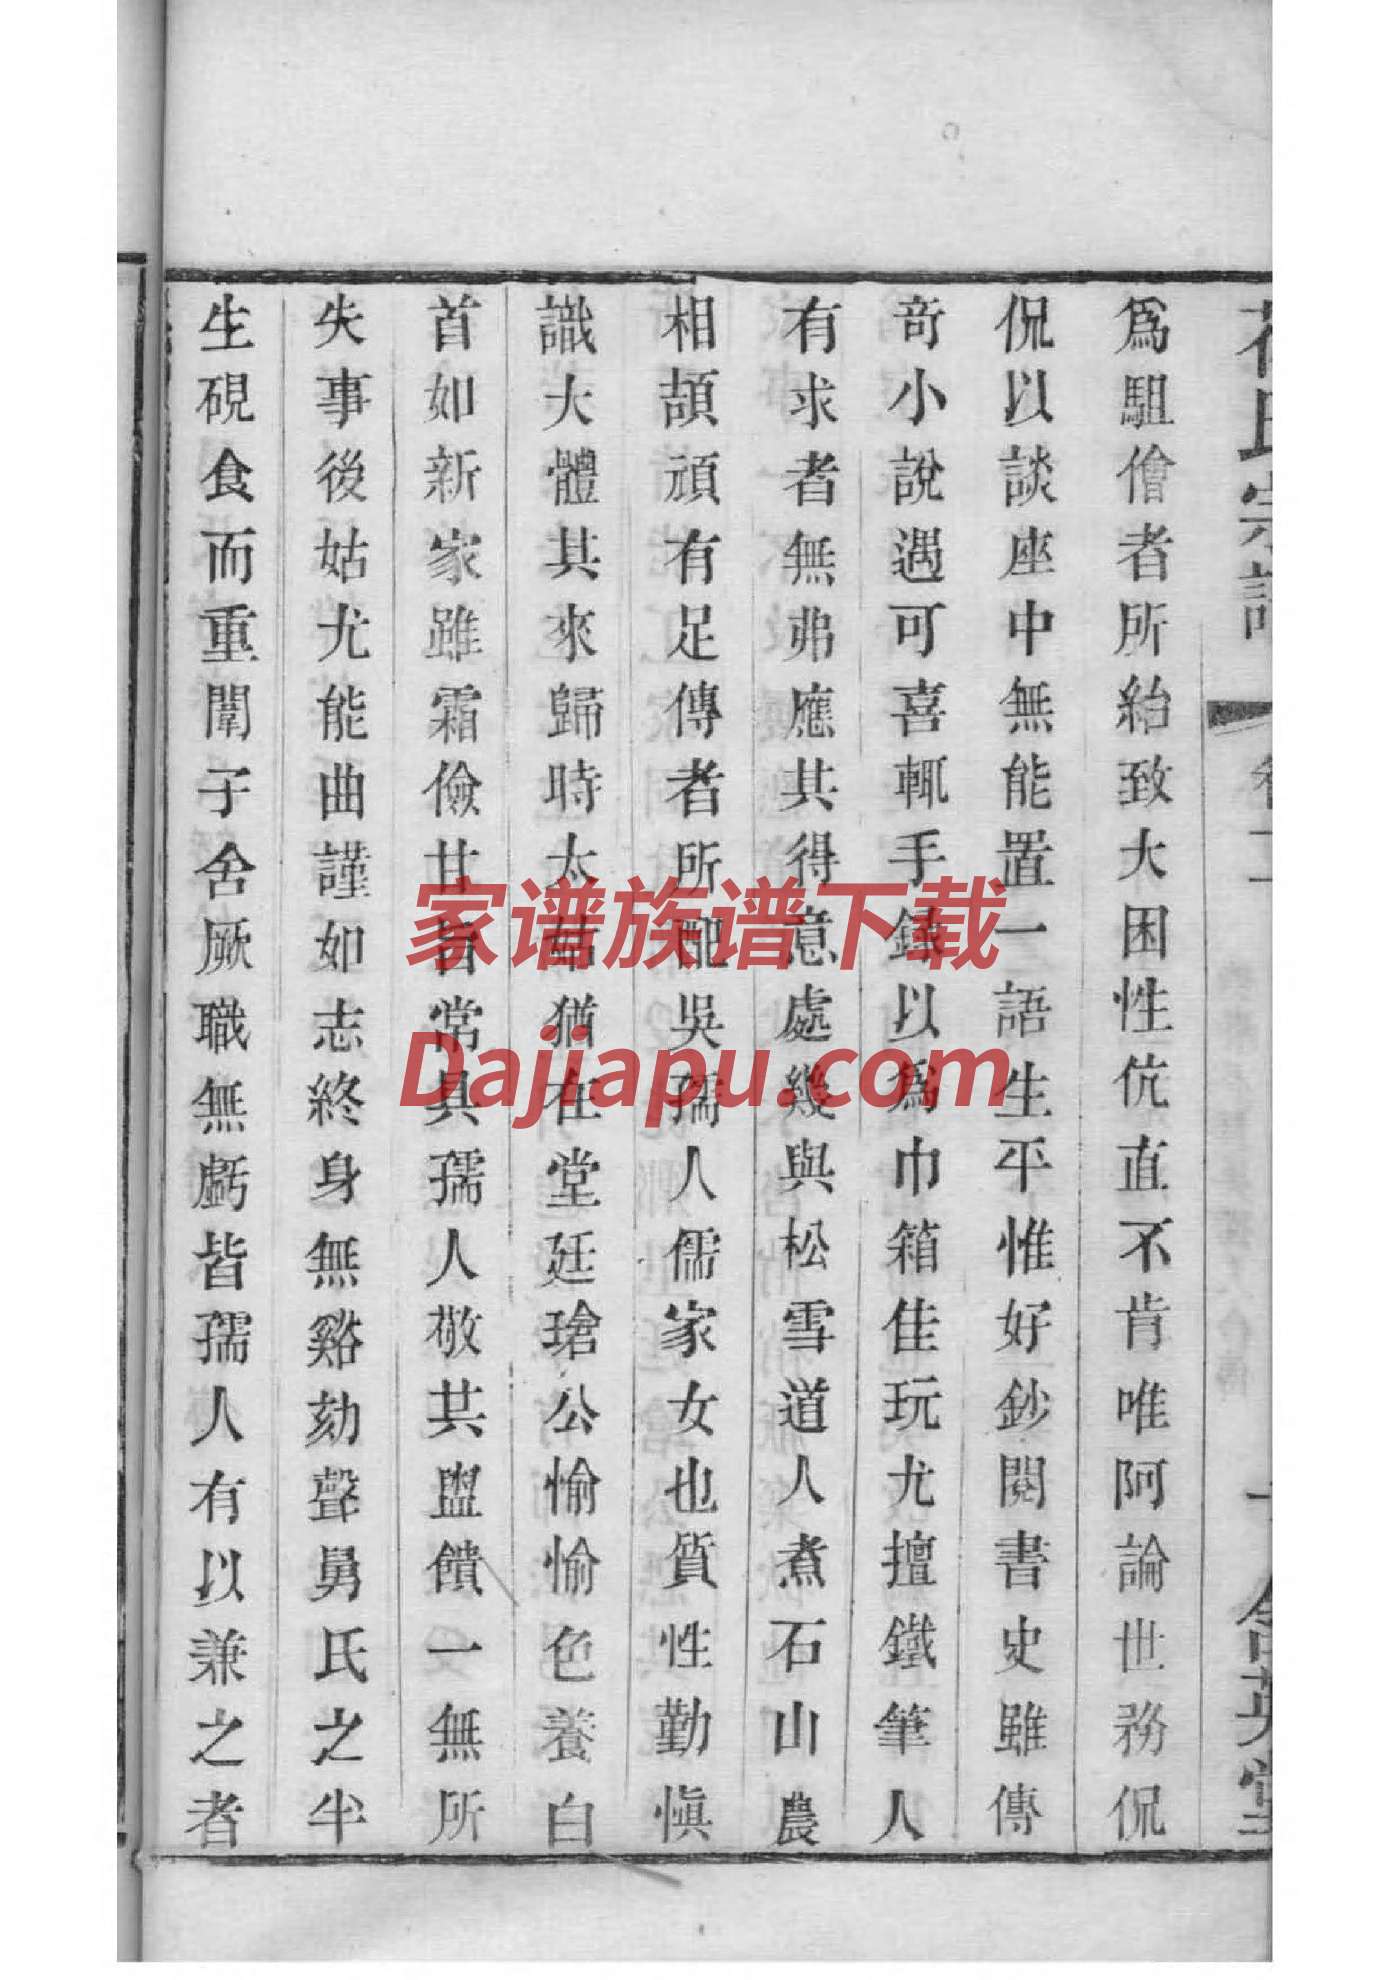 氏宗譜
爲駔儈者所紿致大困性伉直不肯唯阿論世務侃
侃以談座中無能置一語生平惟好鈔閱書史雖傳
奇小說遇可喜輒手錄以爲巾箱佳玩尤擅鐵筆人
有求者無弗應其得意處幾與松雪道人煮石山農
相頡頏有足傳者所配吳孺人儒家女也質性勤愼
識大體其來歸時太姑猶在堂廷瑲公愉愉色養白
首如新家雖霜儉甘旨常具孺人敬共盥饋一無所
失事後姑尤能曲謹如志終身無谿勃聲舅氏之半
生硯食而重闈子舍厥職無虧皆孺人有以兼之者
含英堂
家谱族谱下载
Dajiapu.com